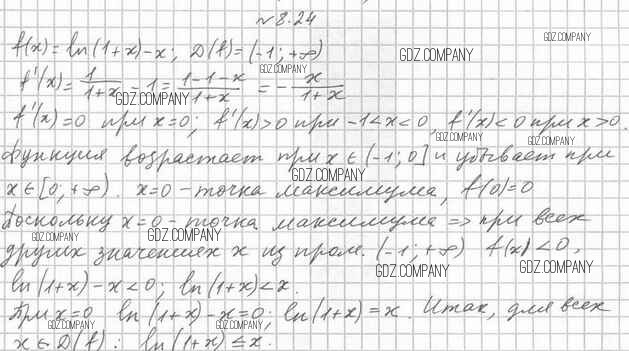 №8.24
f(x)=ln(1+x)-x; D(f)=(-1;+∞)
GDZ.COMPANY
GDZ.COMPANY
f'(x)=1/(1+x)-1=(1-1-x)/(1+x)=-x/(1+x)
GDZ.COMPANY
GDZ.COMPANY
f'(x)=0 при x=0; f'(x)>0 при -1<x<0, f'(x)<0 при x>0.
GDZ.COMPANY
GDZ.COMPANY
Функция возрастает при x∈(-1;0] и убывает при
GDZ.COMPANY
x∈[0;+∞). x=0 - точка максимума, f(0)=0
Поскольку x=0 - точка максимума => при всех
GDZ.COMPANY
GDZ.COMPANY
других значениях x из пром. (-1;+∞) f(x)<0,
GDZ.COMPANY
GDZ.COMPANY
ln(1+x)-x<0; ln(1+x)<x.
При x=0 ln(1+x)-x=0; ln(1+x)=x. Итак, для всех
GDZ.COMPANY
GDZ.COMPANY
x∈D(f): ln(1+x)≤x.